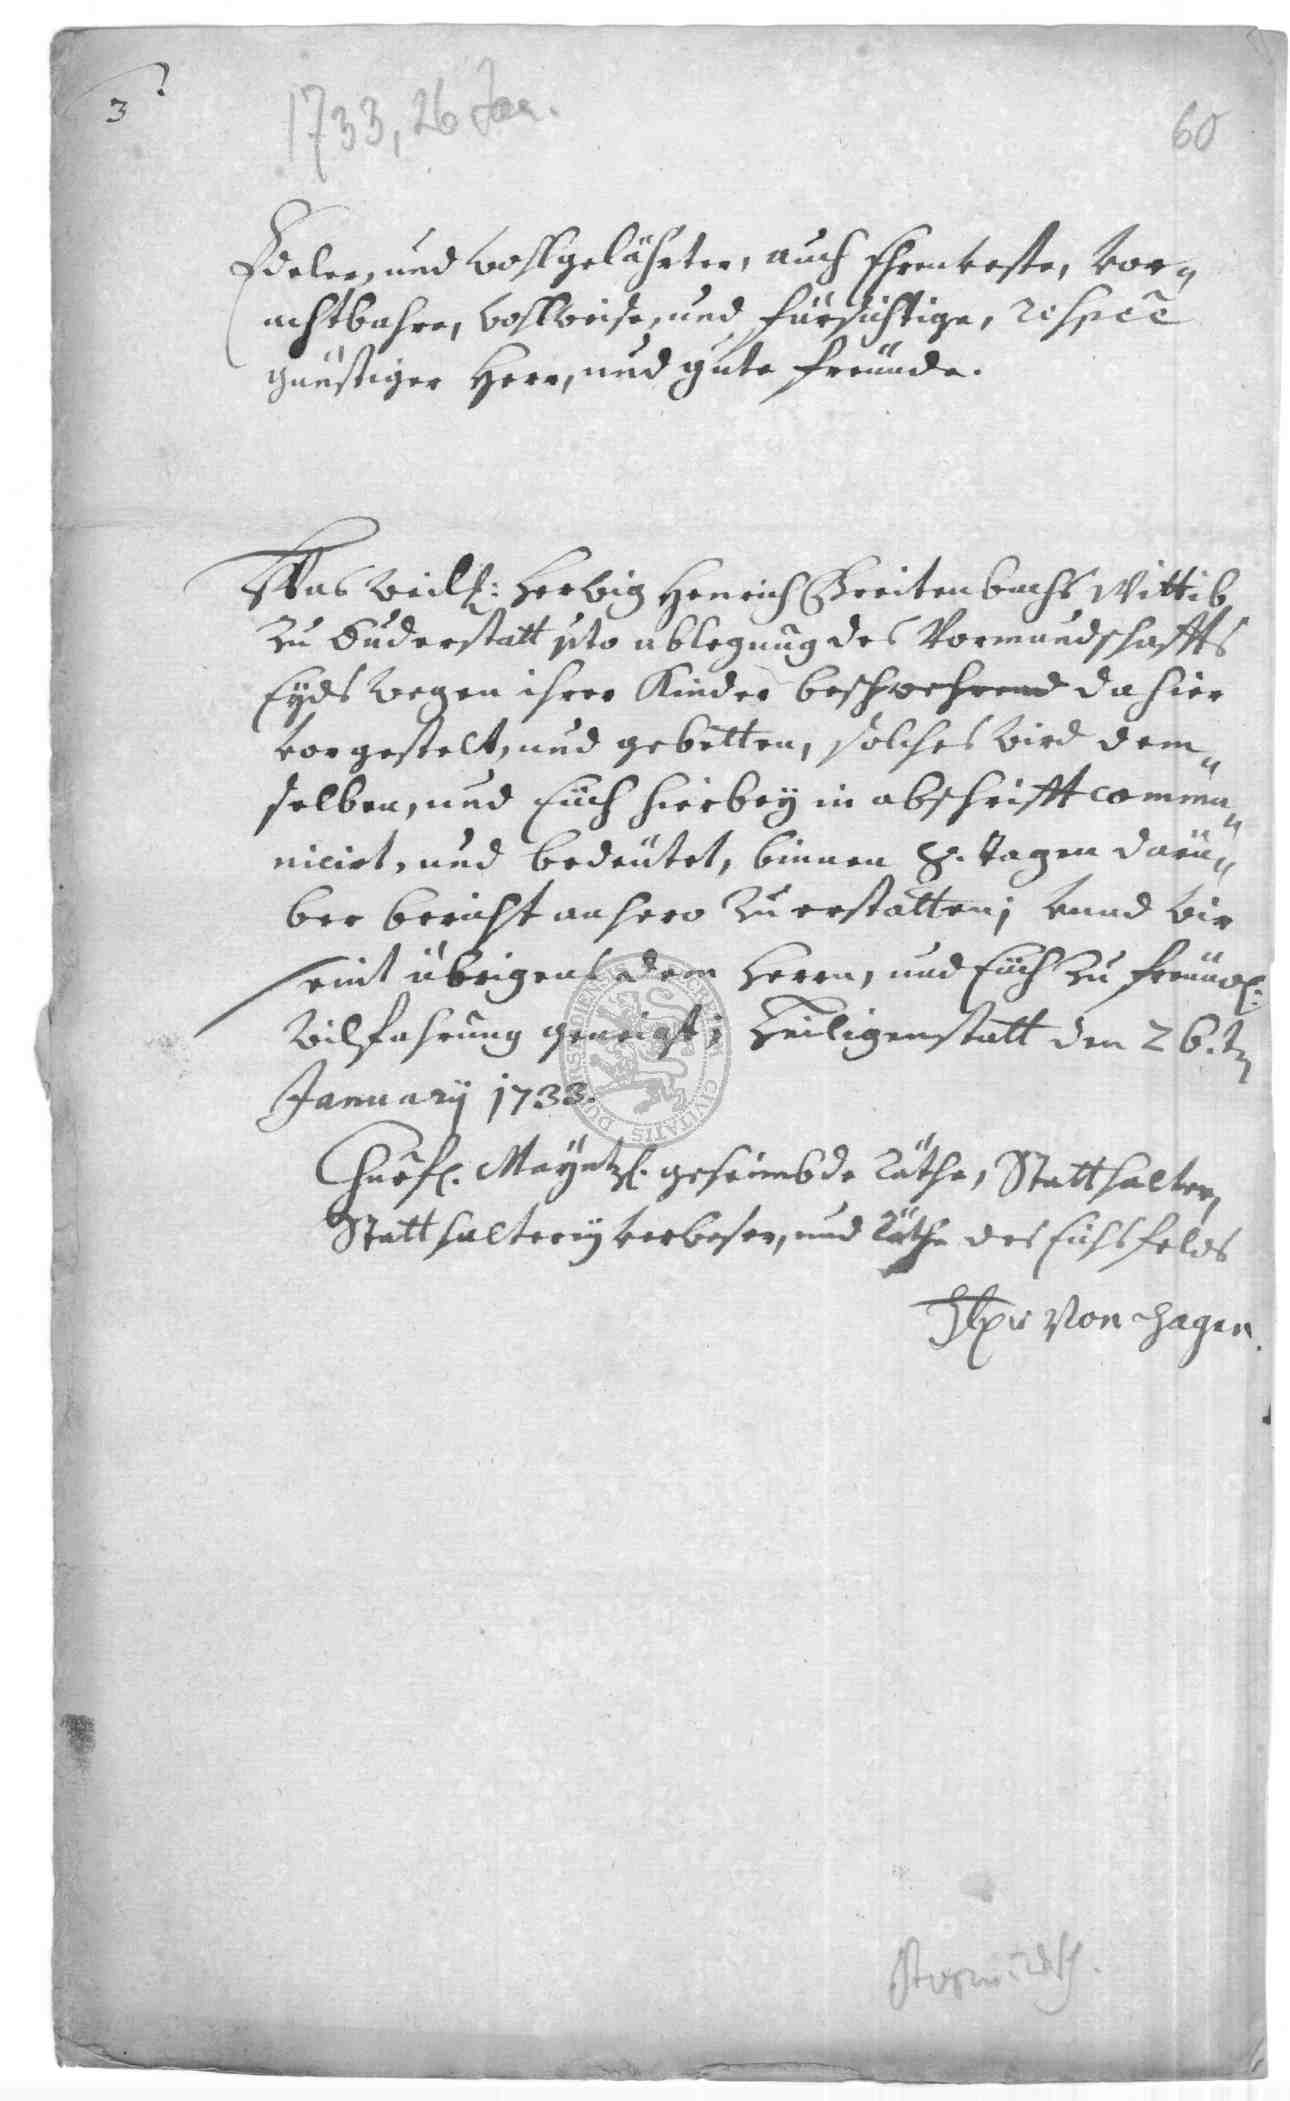 3
1733, 26 Jan.
60
Edeler, und wohlgelährter, auch Ehrenveste, vor„
achtbahre, wohlweise, und fürsichtige, respec
günstiger Herr, und gute freünde.
Was weil: Herwig Henrich Breitenbachs Wittib
zu Duderstatt pto ablegung des Vormundschaffts
Eyds wegen ihrer Kinder beschwehrend dahier
vorgestelt, und gebetten, solches wird dem„
selben, und Eüch hierbey in abschrifft commu„
nicirt, und bedeütet, binnen 8. tagen darü„
ber bericht anhero zu erstatten; vnnd wir
seint übrigens dem Herrn, und Eüch zu freündl:
wilfahrung geneigt; Heiligenstatt den 26.t
January 1733.
Churfl. Mayntzl. geheimbde Räthe, Statthalter,
Statthalterey verweser, und Räthe des Eichsfelds
von Hagen
CIVITATIS
Vormundsch.